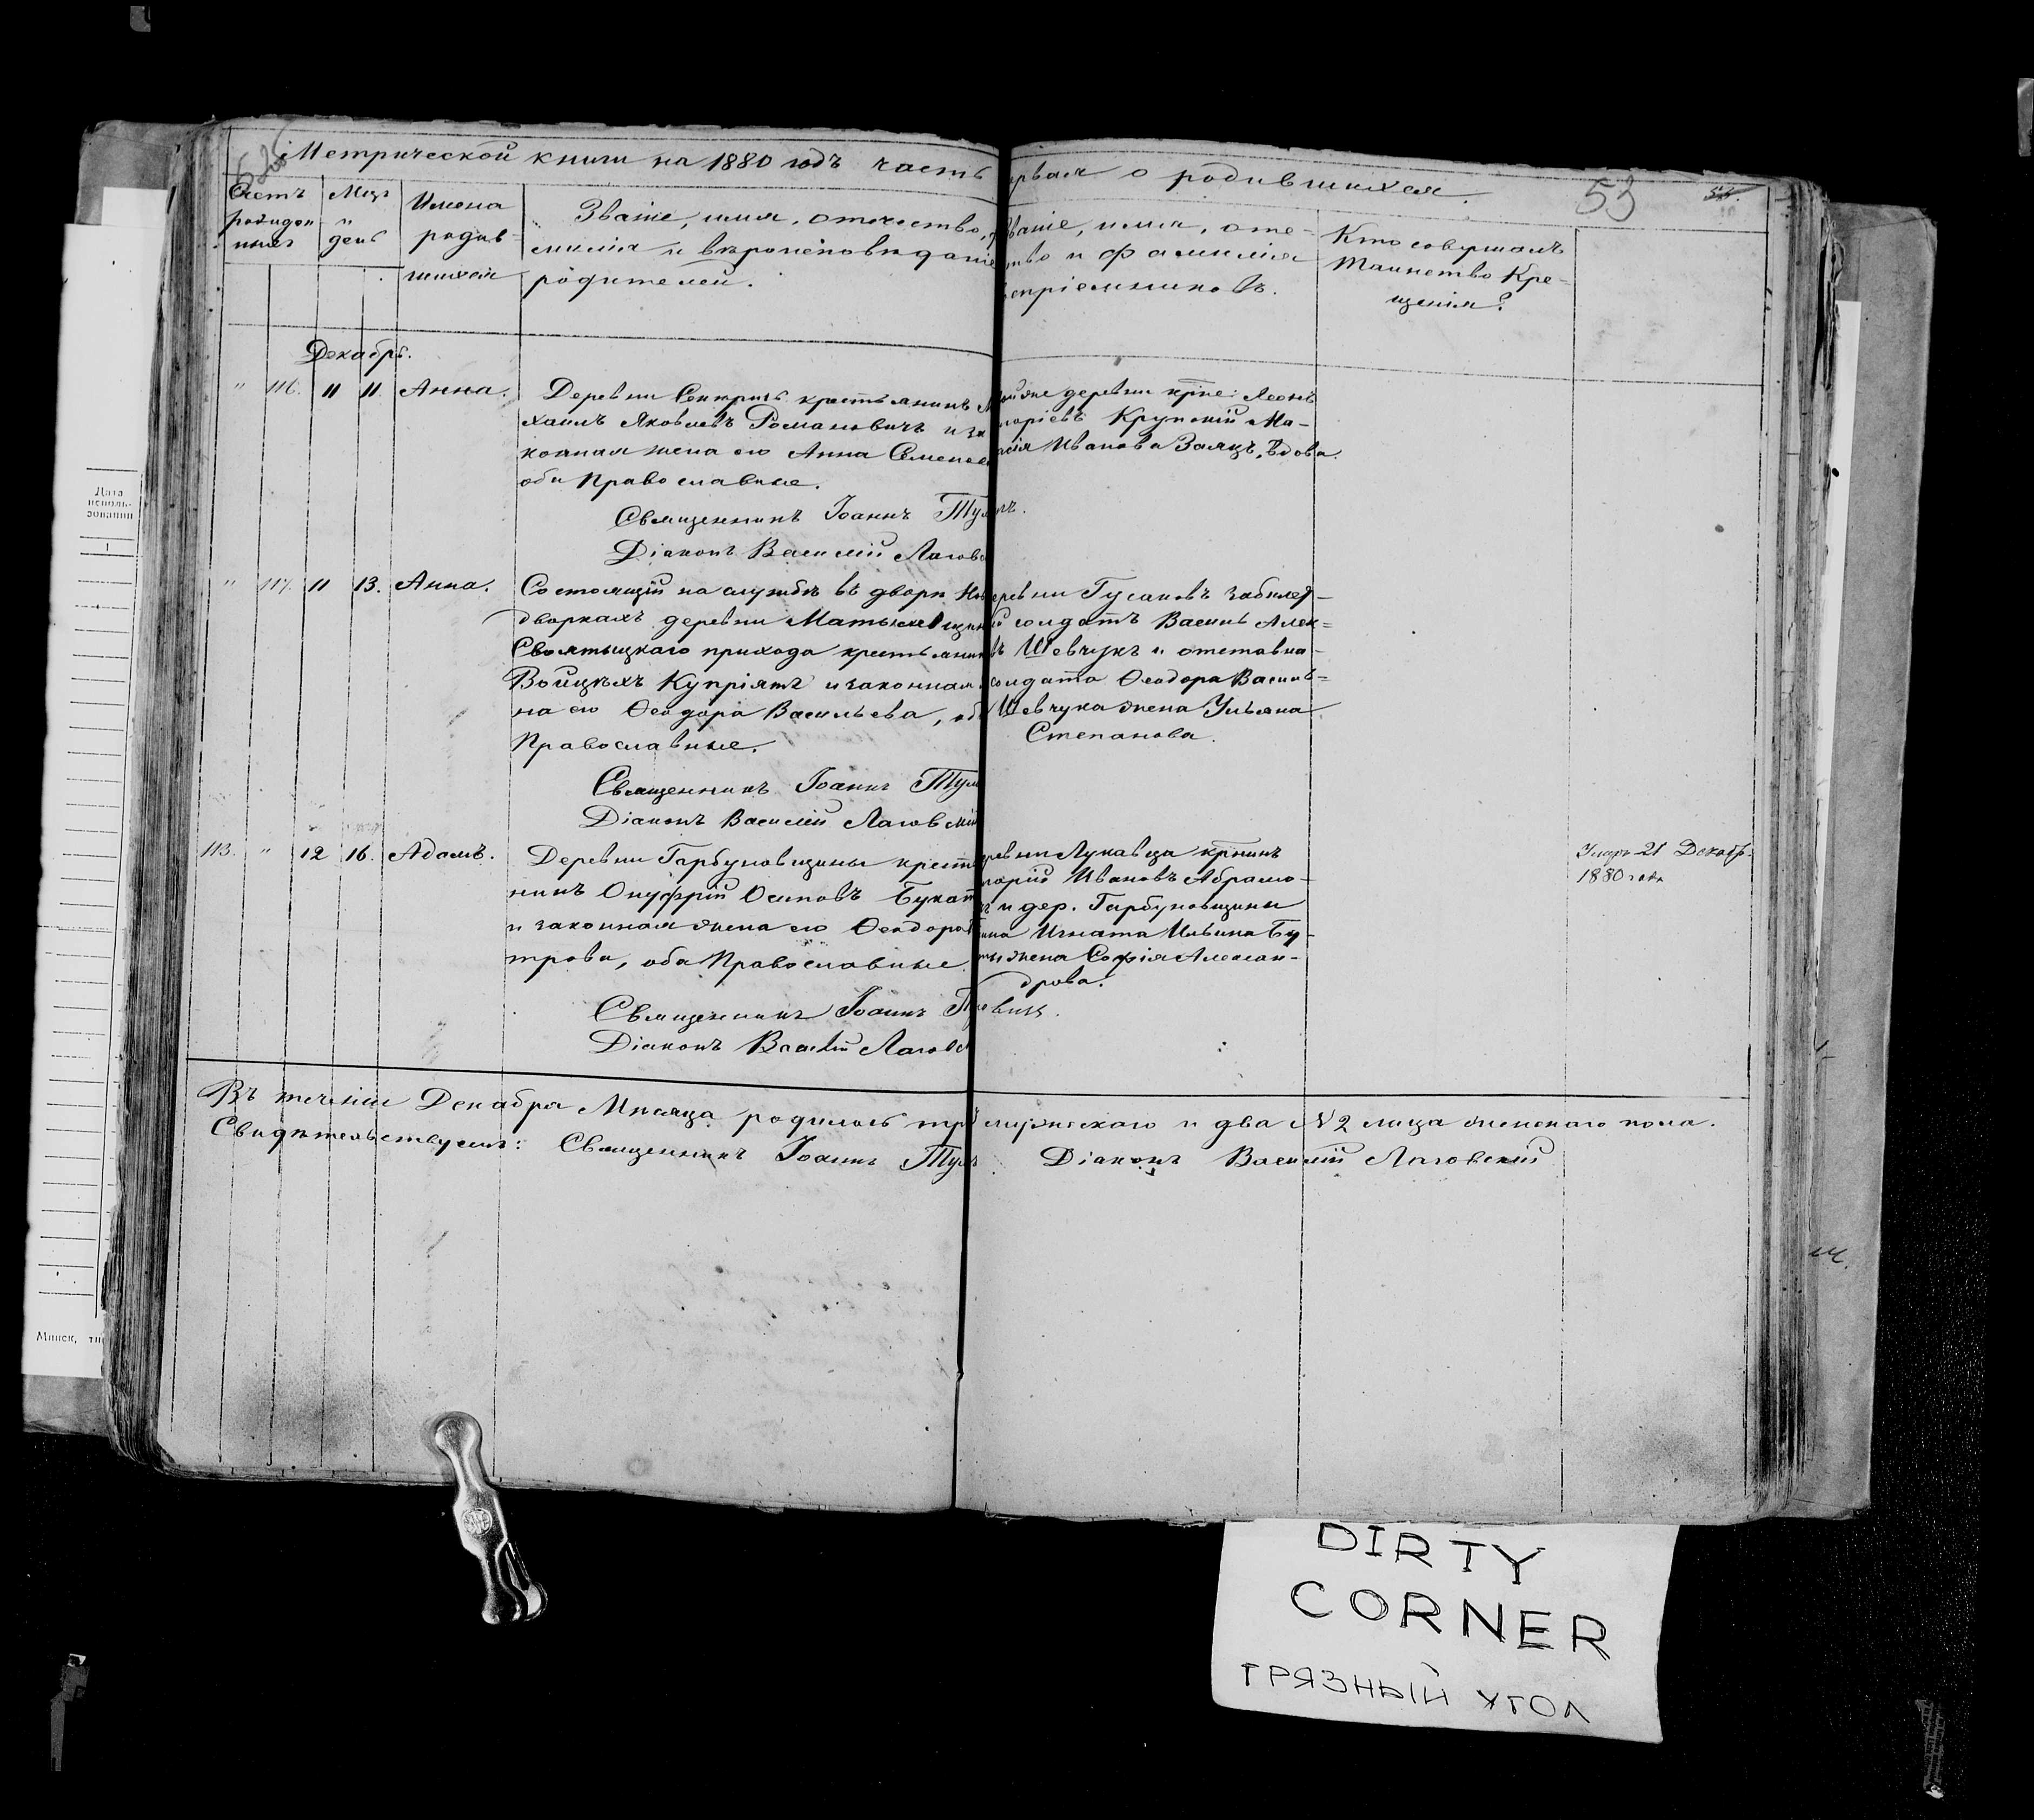 Метрической книги на 1880 годъ часть
рвая о родившихся.
53
Счетъ родив
Мѣц. и день
Имена родив-
шихся
Званіе, имя, отчество,
милія и вѣроисповѣданіе
родителей.
Званіе, имя, оте-
тво и фамилія
Кто совершалъ
Таинство Кре-
щенія?
Декабрь.
" 116. 11 11 Анна.
Деревни крестьянинъ
хаилъ Яковлевъ Романовичъ и за
конная жена его Анна Семенов
оба Православные.
Священникъ Іоаннъ
Діаконъ Василій Лагов
же деревни Леонъ
Крупскій Ма-
Иванова Заяцъ, вдова.
" 117. 11 13. Анна.
Состоящій на службѣ въ дворѣ Нов
дворкахъ деревни
прихода крестьянин
Войцѣхъ Купріятъ и законная
на его Ѳеодора Васильева, об
Православные.
Священникъ Іоаннъ
Діаконъ Василій Лаговскій
ревни Гусаковъ
солдатъ Василь Алек=
въ Шевчукъ и отставна-
солдата Ѳеодора Василь=
Шевчука жена Ульяна
Степанова.
113. " 12 16. Адамъ.
Деревни Гарбуновщины крестья
нинъ Онуфрій Осиповъ Букат
и законная жена его Ѳеодора
трова, оба Православные.
Священникъ Іоаннъ
Діаконъ Василій Лагов
ревни Лукавца
Ивановъ Абрамо-
и дер. Гарбуновщины
Игната Ильина Бу-
жена Софія Алексан-
дрова.
Умеръ 21 Декабр.
1880 года
Въ теченіи Декабря Мѣсяца родилось
мужескаго и два № 2 лица женскаго пола.
Свидѣтельствуемъ: Священникъ Іоаннъ
Діаконъ Василій Лаговскій
Дата
исполь-
зования
Минск, ти
DIRTY
CORNER
ГРЯЗНЫЙ УГОЛ